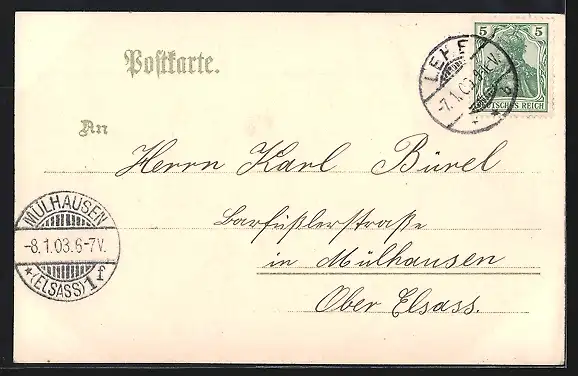 Postkarte.
5 5
DEUTSCHES REICH
LEHE
-7.1.03.
An
Herrn Karl Bürel
Barfüßlerstraße
in Mülhausen
Ober Elsass.
MÜLHAUSEN
-8.1.03.6-7V.
*(ELSASS)1f